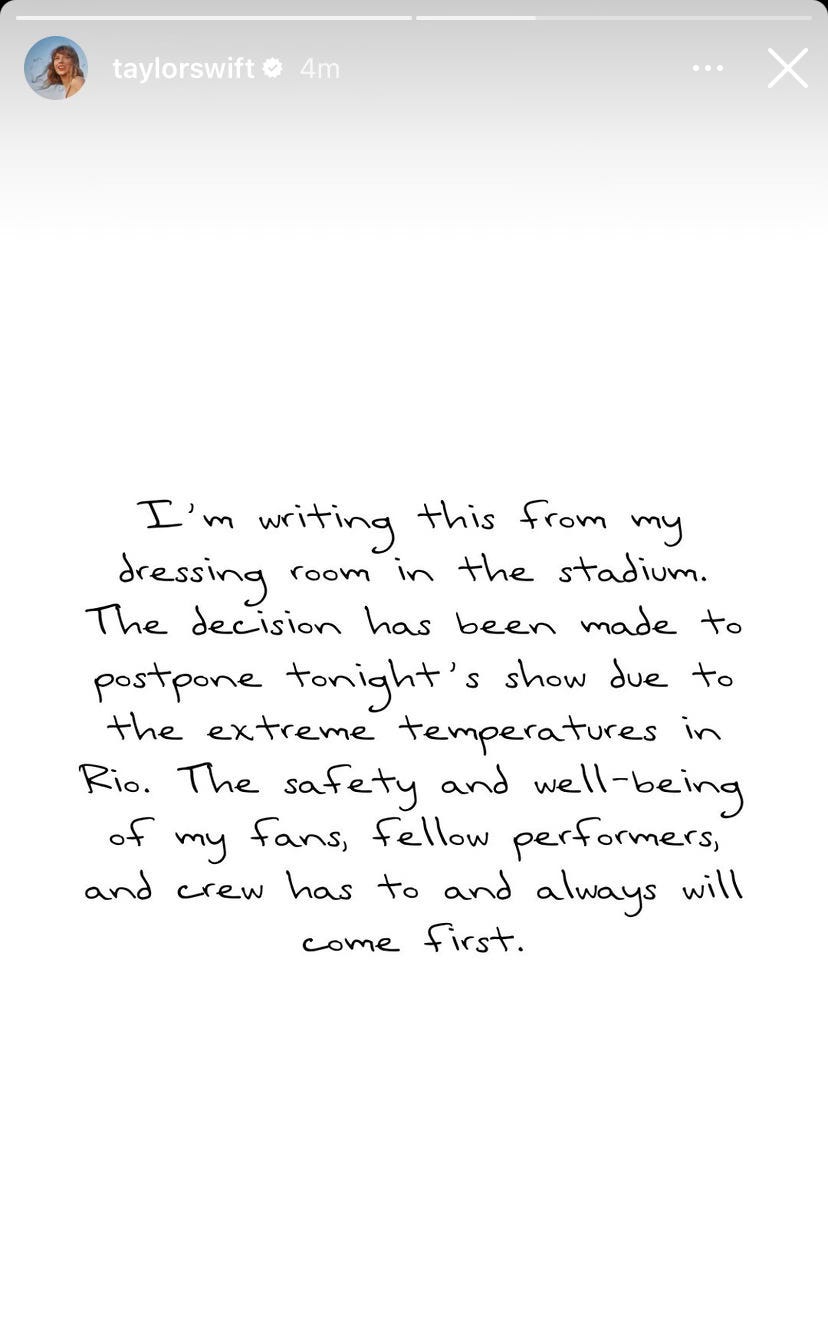 taylorswift 4m
I'm writing this from my
dressing room in the stadium.
The decision has been made to
postpone tonight's show due to
the extreme temperatures in
Rio. The safety and well-being
of my fans, fellow performers,
and crew has to and always will
come first.